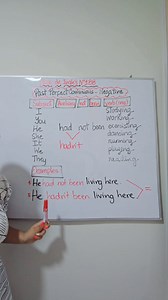 Past Perfect Continuous - Negative
Subject Auxiliary not been verb (ing)
I studying
You working
He
She had not been dancing
It hadn't running
We playing
They
Examples
* He had not been living here. =
* He hadn't been living here.